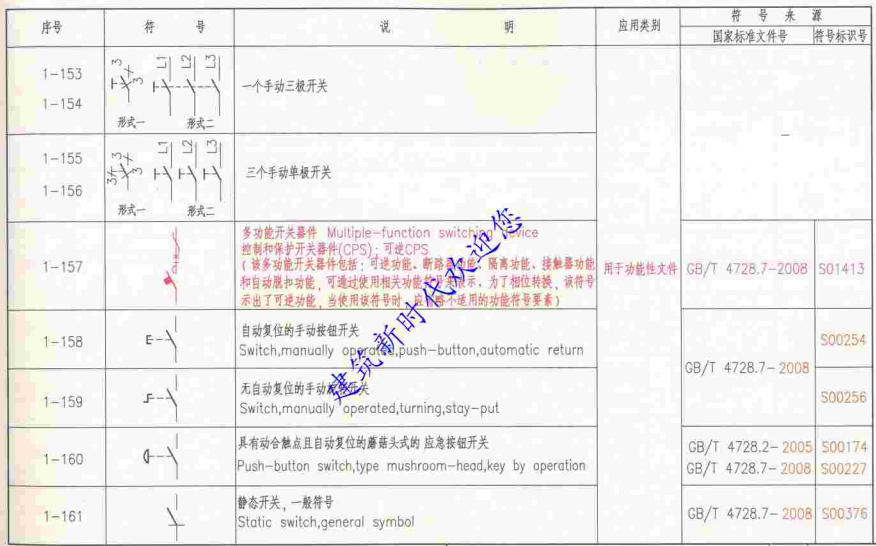 序号 符 号 说 明 应用类别 符 号 来 源
国家标准文件号 符号标识号
1-153
1-154
3 3 L1 L2 L3
形式一 形式二
一个手动三极开关
—
1-155
1-156
3 3 L1 L2 L3
形式一 形式二
三个手动单极开关
1-157
多功能开关器件 Multiple-function switching device
控制和保护开关器件(CPS);可逆CPS
(该多功能开关器件包括:可逆功能、断路器功能、隔离功能、接触器功能
和自动脱扣功能,可通过使用相关功能符号来表示。为了相位转换,该符号
示出了可逆功能,当使用该符号时,应省略不适用的功能符号要素)
用于功能性文件
GB/T 4728.7-2008 S01413
1-158
自动复位的手动按钮开关
Switch,manually operated,push-button,automatic return
S00254
GB/T 4728.7-2008
1-159
无自动复位的手动旋转开关
Switch,manually operated,turning,stay-put
S00256
1-160
具有动合触点且自动复位的蘑菇头式的 应急按钮开关
Push-button switch,type mushroom-head,key by operation
GB/T 4728.2-2005 S00174
GB/T 4728.7-2008 S00227
1-161
静态开关,一般符号
Static switch,general symbol
GB/T 4728.7-2008 S00376
建筑新时代欢迎您